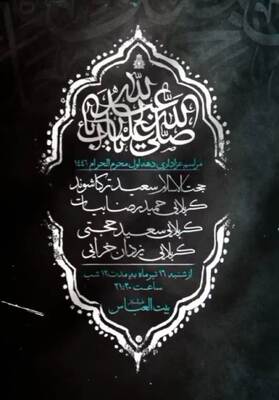 صلی الله علیک یا اباعبدالله
مراسم عزاداری دهه اول محرم الحرام ۱۴۴۶
حجت الاسلام سعید ترکاشوند
کربلایی حمیدرضا بیات
کربلایی سعید حجتی
کربلایی یزدان خزایی
از شنبه ۱۶ تیرماه به مدت ۱۲ شب
ساعت ۲۱:۳۰
بیت العباس